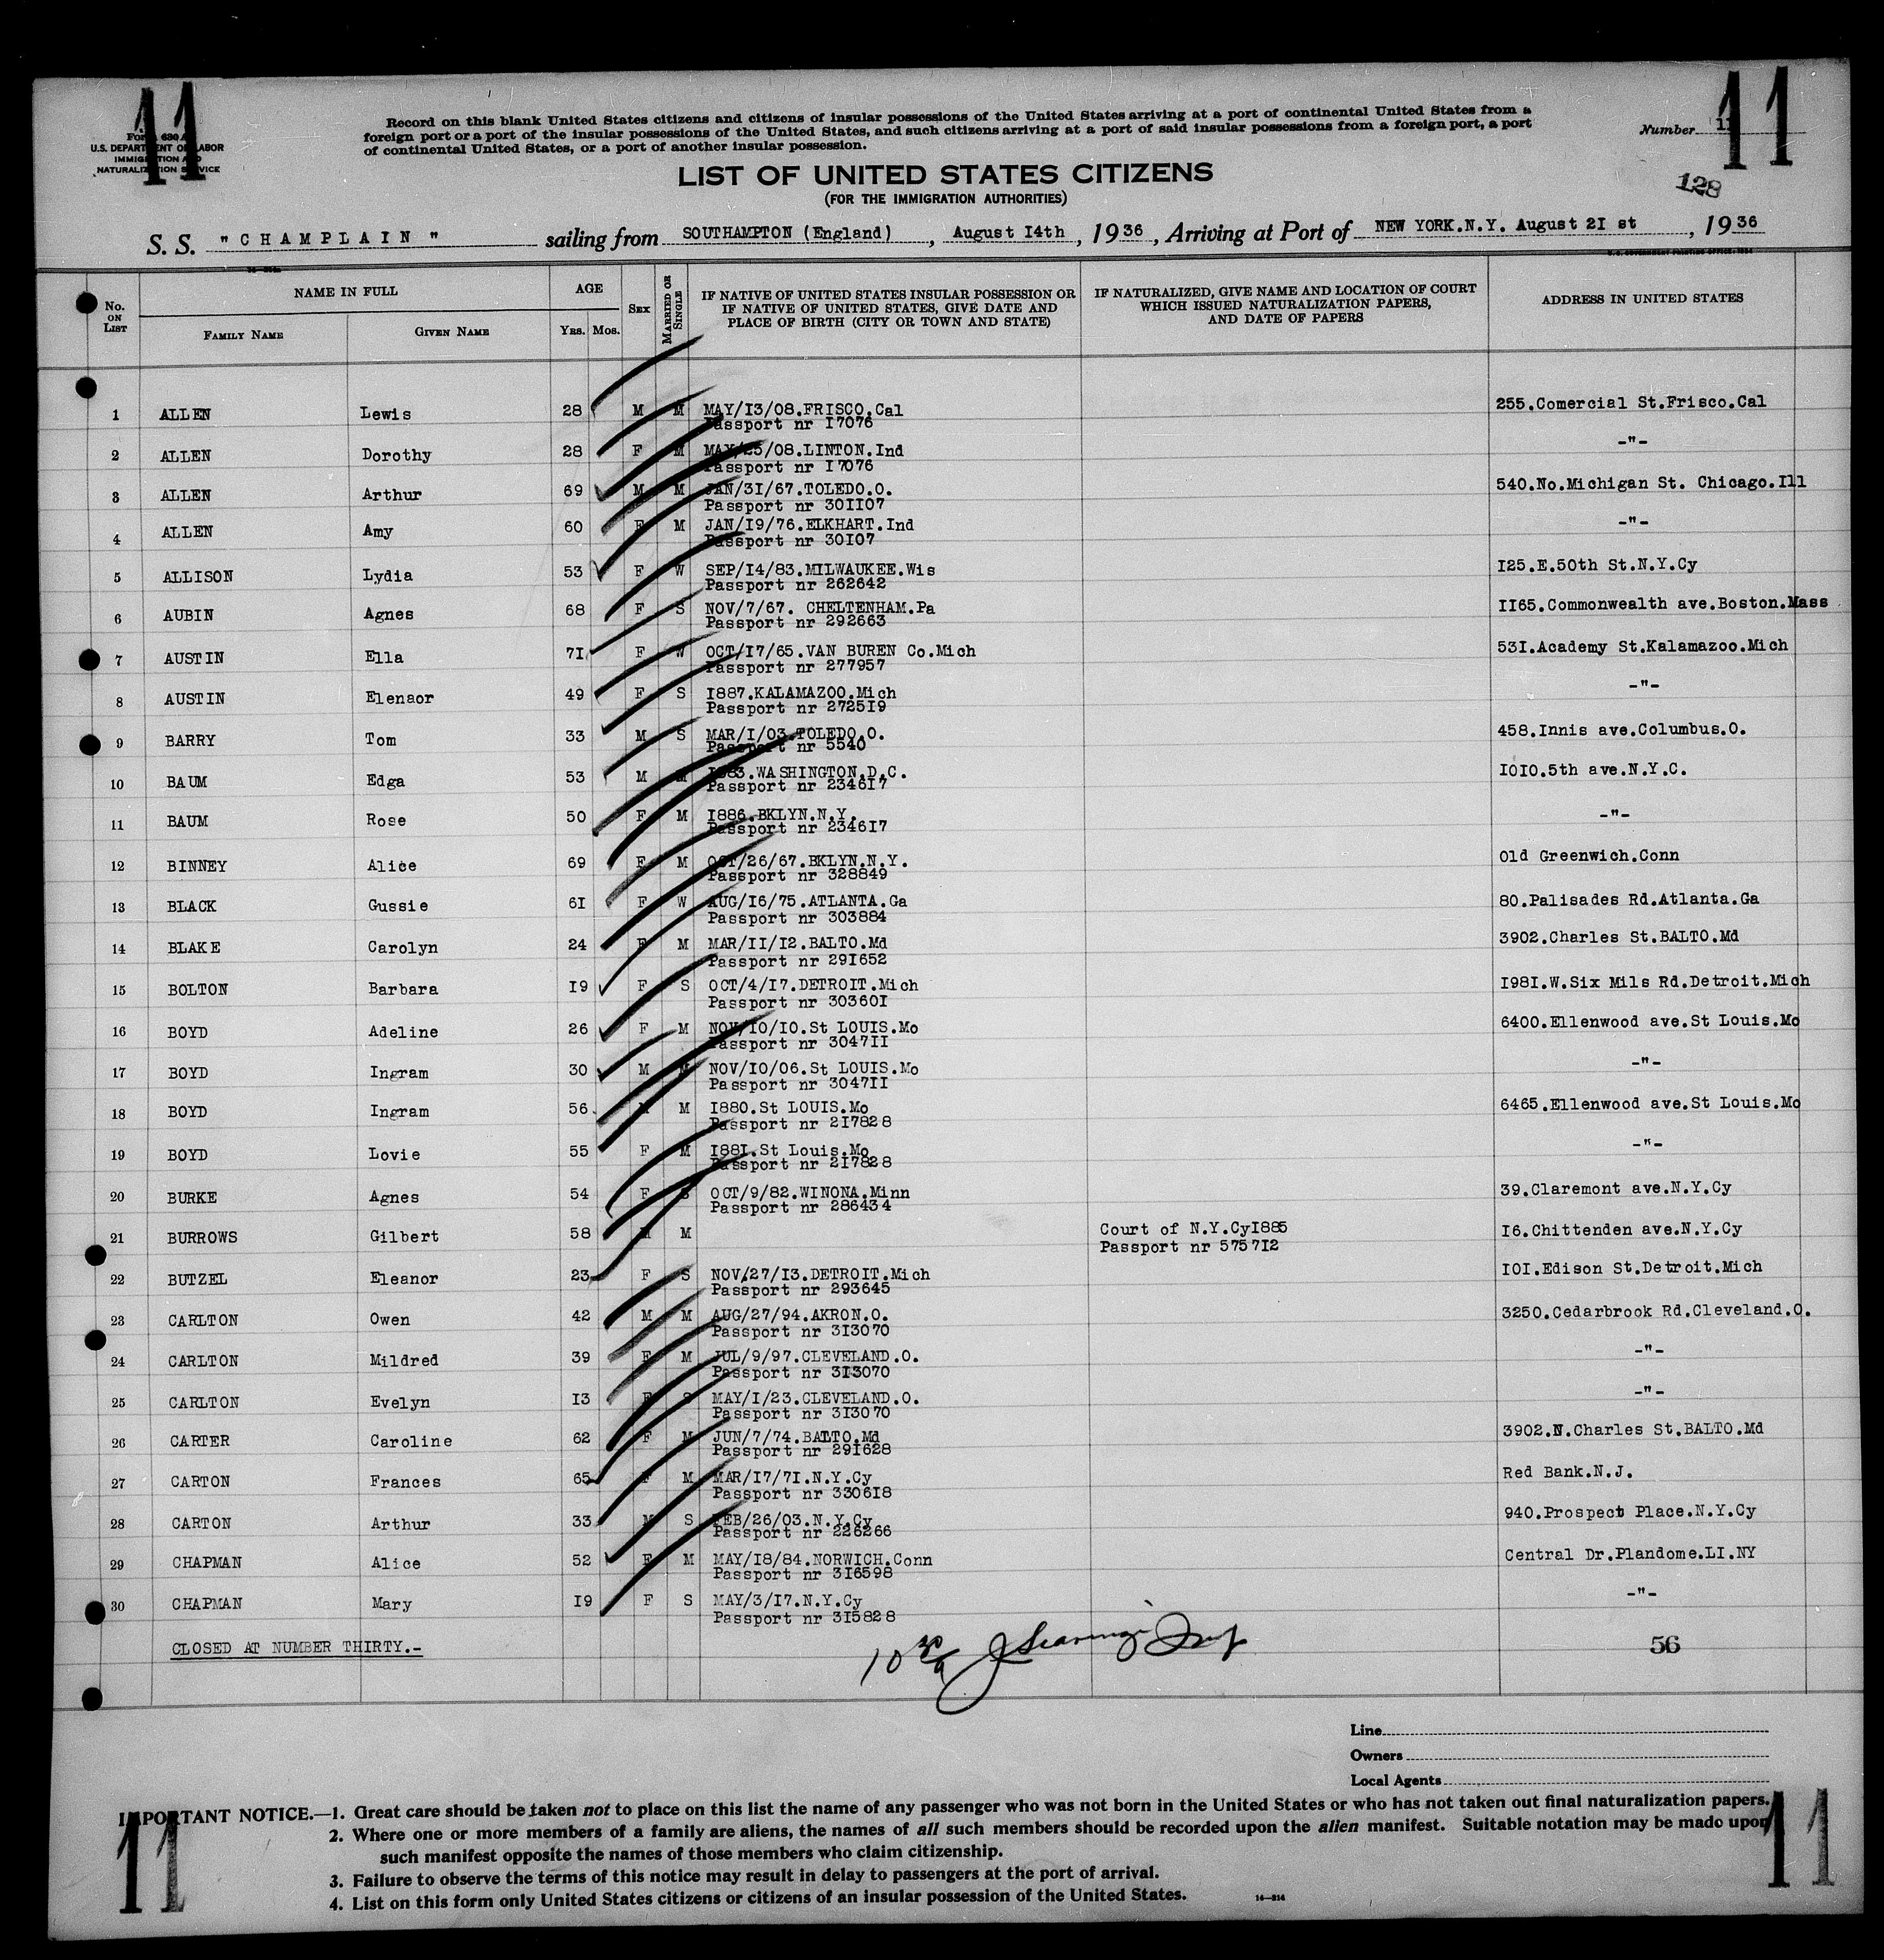 11
11
Form 630 A
U.S. DEPARTMENT OF LABOR
IMMIGRATION AND
NATURALIZATION SERVICE
Record on this blank United States citizens and citizens of insular possessions of the United States arriving at a port of continental United States from a
foreign port or a port of the insular possessions of the United States, and such citizens arriving at a port of said insular possessions from a foreign port, a port
of continental United States, or a port of another insular possession.
Number 11
LIST OF UNITED STATES CITIZENS
(FOR THE IMMIGRATION AUTHORITIES)
128
S. S. "CHAMPLAIN" sailing from SOUTHAMPTON (England), August I4th, 1936, Arriving at Port of NEW YORK.N.Y. August 2I st, 1936
No. ON LIST
NAME IN FULL
FAMILY NAME
GIVEN NAME
AGE
YRS. MOS.
SEX
MARRIED OR SINGLE
IF NATIVE OF UNITED STATES INSULAR POSSESSION OR
IF NATIVE OF UNITED STATES, GIVE DATE AND
PLACE OF BIRTH (CITY OR TOWN AND STATE)
IF NATURALIZED, GIVE NAME AND LOCATION OF COURT
WHICH ISSUED NATURALIZATION PAPERS,
AND DATE OF PAPERS
ADDRESS IN UNITED STATES
1 ALLEN Lewis 28 M M MAY/I3/08.FRISCO.Cal 255.Comercial St.Frisco.Cal
Passport nr I7076
2 ALLEN Dorothy 28 F M MAY/25/08.LINTON.Ind -"-
Passport nr I7076
3 ALLEN Arthur 69 M M JAN/3I/67.TOLEDO.O. 540.No.Michigan St. Chicago.Ill
Passport nr 30II07
4 ALLEN Amy 60 F M JAN/I9/76.ELKHART.Ind -"-
Passport nr 30I07
5 ALLISON Lydia 53 F W SEP/I4/83.MILWAUKEE.Wis I25.E.50th St.N.Y.Cy
Passport nr 262642
6 AUBIN Agnes 68 F S NOV/7/67. CHELTENHAM.Pa II65.Commonwealth ave.Boston.Mass
Passport nr 292663
7 AUSTIN Ella 7I F W OCT/I7/65.VAN BUREN Co.Mich 53I.Academy St.Kalamazoo.Mich
Passport nr 277957
8 AUSTIN Elenaor 49 F S I887.KALAMAZOO.Mich -"-
Passport nr 2725I9
9 BARRY Tom 33 M S MAR/I/03.TOLEDO.O. 458.Innis ave.Columbus.O.
Passport nr 5540
10 BAUM Edga 53 M M I883.WASHINGTON.D.C. I0I0.5th ave.N.Y.C.
Passport nr 2346I7
11 BAUM Rose 50 F M I886.BKLYN.N.Y. -"-
Passport nr 2346I7
12 BINNEY Alice 69 F M OCT/26/67.BKLYN.N.Y. Old Greenwich.Conn
Passport nr 328849
13 BLACK Gussie 6I F W AUG/I6/75.ATLANTA.Ga 80.Palisades Rd.Atlanta.Ga
Passport nr 303884
14 BLAKE Carolyn 24 F M MAR/II/I2.BALTO.Md 3902.Charles St.BALTO.Md
Passport nr 29I652
15 BOLTON Barbara I9 F S OCT/4/I7.DETROIT.Mich I98I.W.Six Mils Rd.Detroit.Mich
Passport nr 30360I
16 BOYD Adeline 26 F M NOV/I0/I0.St LOUIS.Mo 6400.Ellenwood ave.St Louis.Mo
Passport nr 3047II
17 BOYD Ingram 30 M M NOV/I0/06.St LOUIS.Mo -"-
Passport nr 3047II
18 BOYD Ingram 56 M M I880.St LOUIS.Mo 6465.Ellenwood ave.St Louis.Mo
Passport nr 2I7828
19 BOYD Lovie 55 F M I88I.St Louis.Mo -"-
Passport nr 2I7828
20 BURKE Agnes 54 F S OCT/9/82.WINONA.Minn 39.Claremont ave.N.Y.Cy
Passport nr 286434
21 BURROWS Gilbert 58 M M Court of N.Y.CyI885 I6.Chittenden ave.N.Y.Cy
Passport nr 5757I2
22 BUTZEL Eleanor 23 F S NOV/27/I3.DETROIT.Mich I0I.Edison St.Detroit.Mich
Passport nr 293645
23 CARLTON Owen 42 M M AUG/27/94.AKRON.O. 3250.Cedarbrook Rd.Cleveland.O.
Passport nr 3I3070
24 CARLTON Mildred 39 F M JUL/9/97.CLEVELAND.O. -"-
Passport nr 3I3070
25 CARLTON Evelyn I3 F S MAY/I/23.CLEVELAND.O. -"-
Passport nr 3I3070
26 CARTER Caroline 62 F M JUN/7/74.BALTO.Md 3902.N.Charles St.BALTO.Md
Passport nr 29I628
27 CARTON Frances 65 F M MAR/I7/7I.N.Y.Cy Red Bank.N.J.
Passport nr 3306I8
28 CARTON Arthur 33 M S FEB/26/03.N.Y.Cy 940.Prospect Place.N.Y.Cy
Passport nr 226266
29 CHAPMAN Alice 52 F M MAY/I8/84.NORWICH.Conn Central Dr.Plandome.LI.NY
Passport nr 3I6598
30 CHAPMAN Mary I9 F S MAY/3/I7.N.Y.Cy -"-
Passport nr 3I5828
CLOSED AT NUMBER THIRTY.-
56
Line
Owners
Local Agents
IMPORTANT NOTICE.—1. Great care should be taken not to place on this list the name of any passenger who was not born in the United States or who has not taken out final naturalization papers.
2. Where one or more members of a family are aliens, the names of all such members should be recorded upon the alien manifest. Suitable notation may be made upon
such manifest opposite the names of those members who claim citizenship.
3. Failure to observe the terms of this notice may result in delay to passengers at the port of arrival.
4. List on this form only United States citizens or citizens of an insular possession of the United States.
11
11